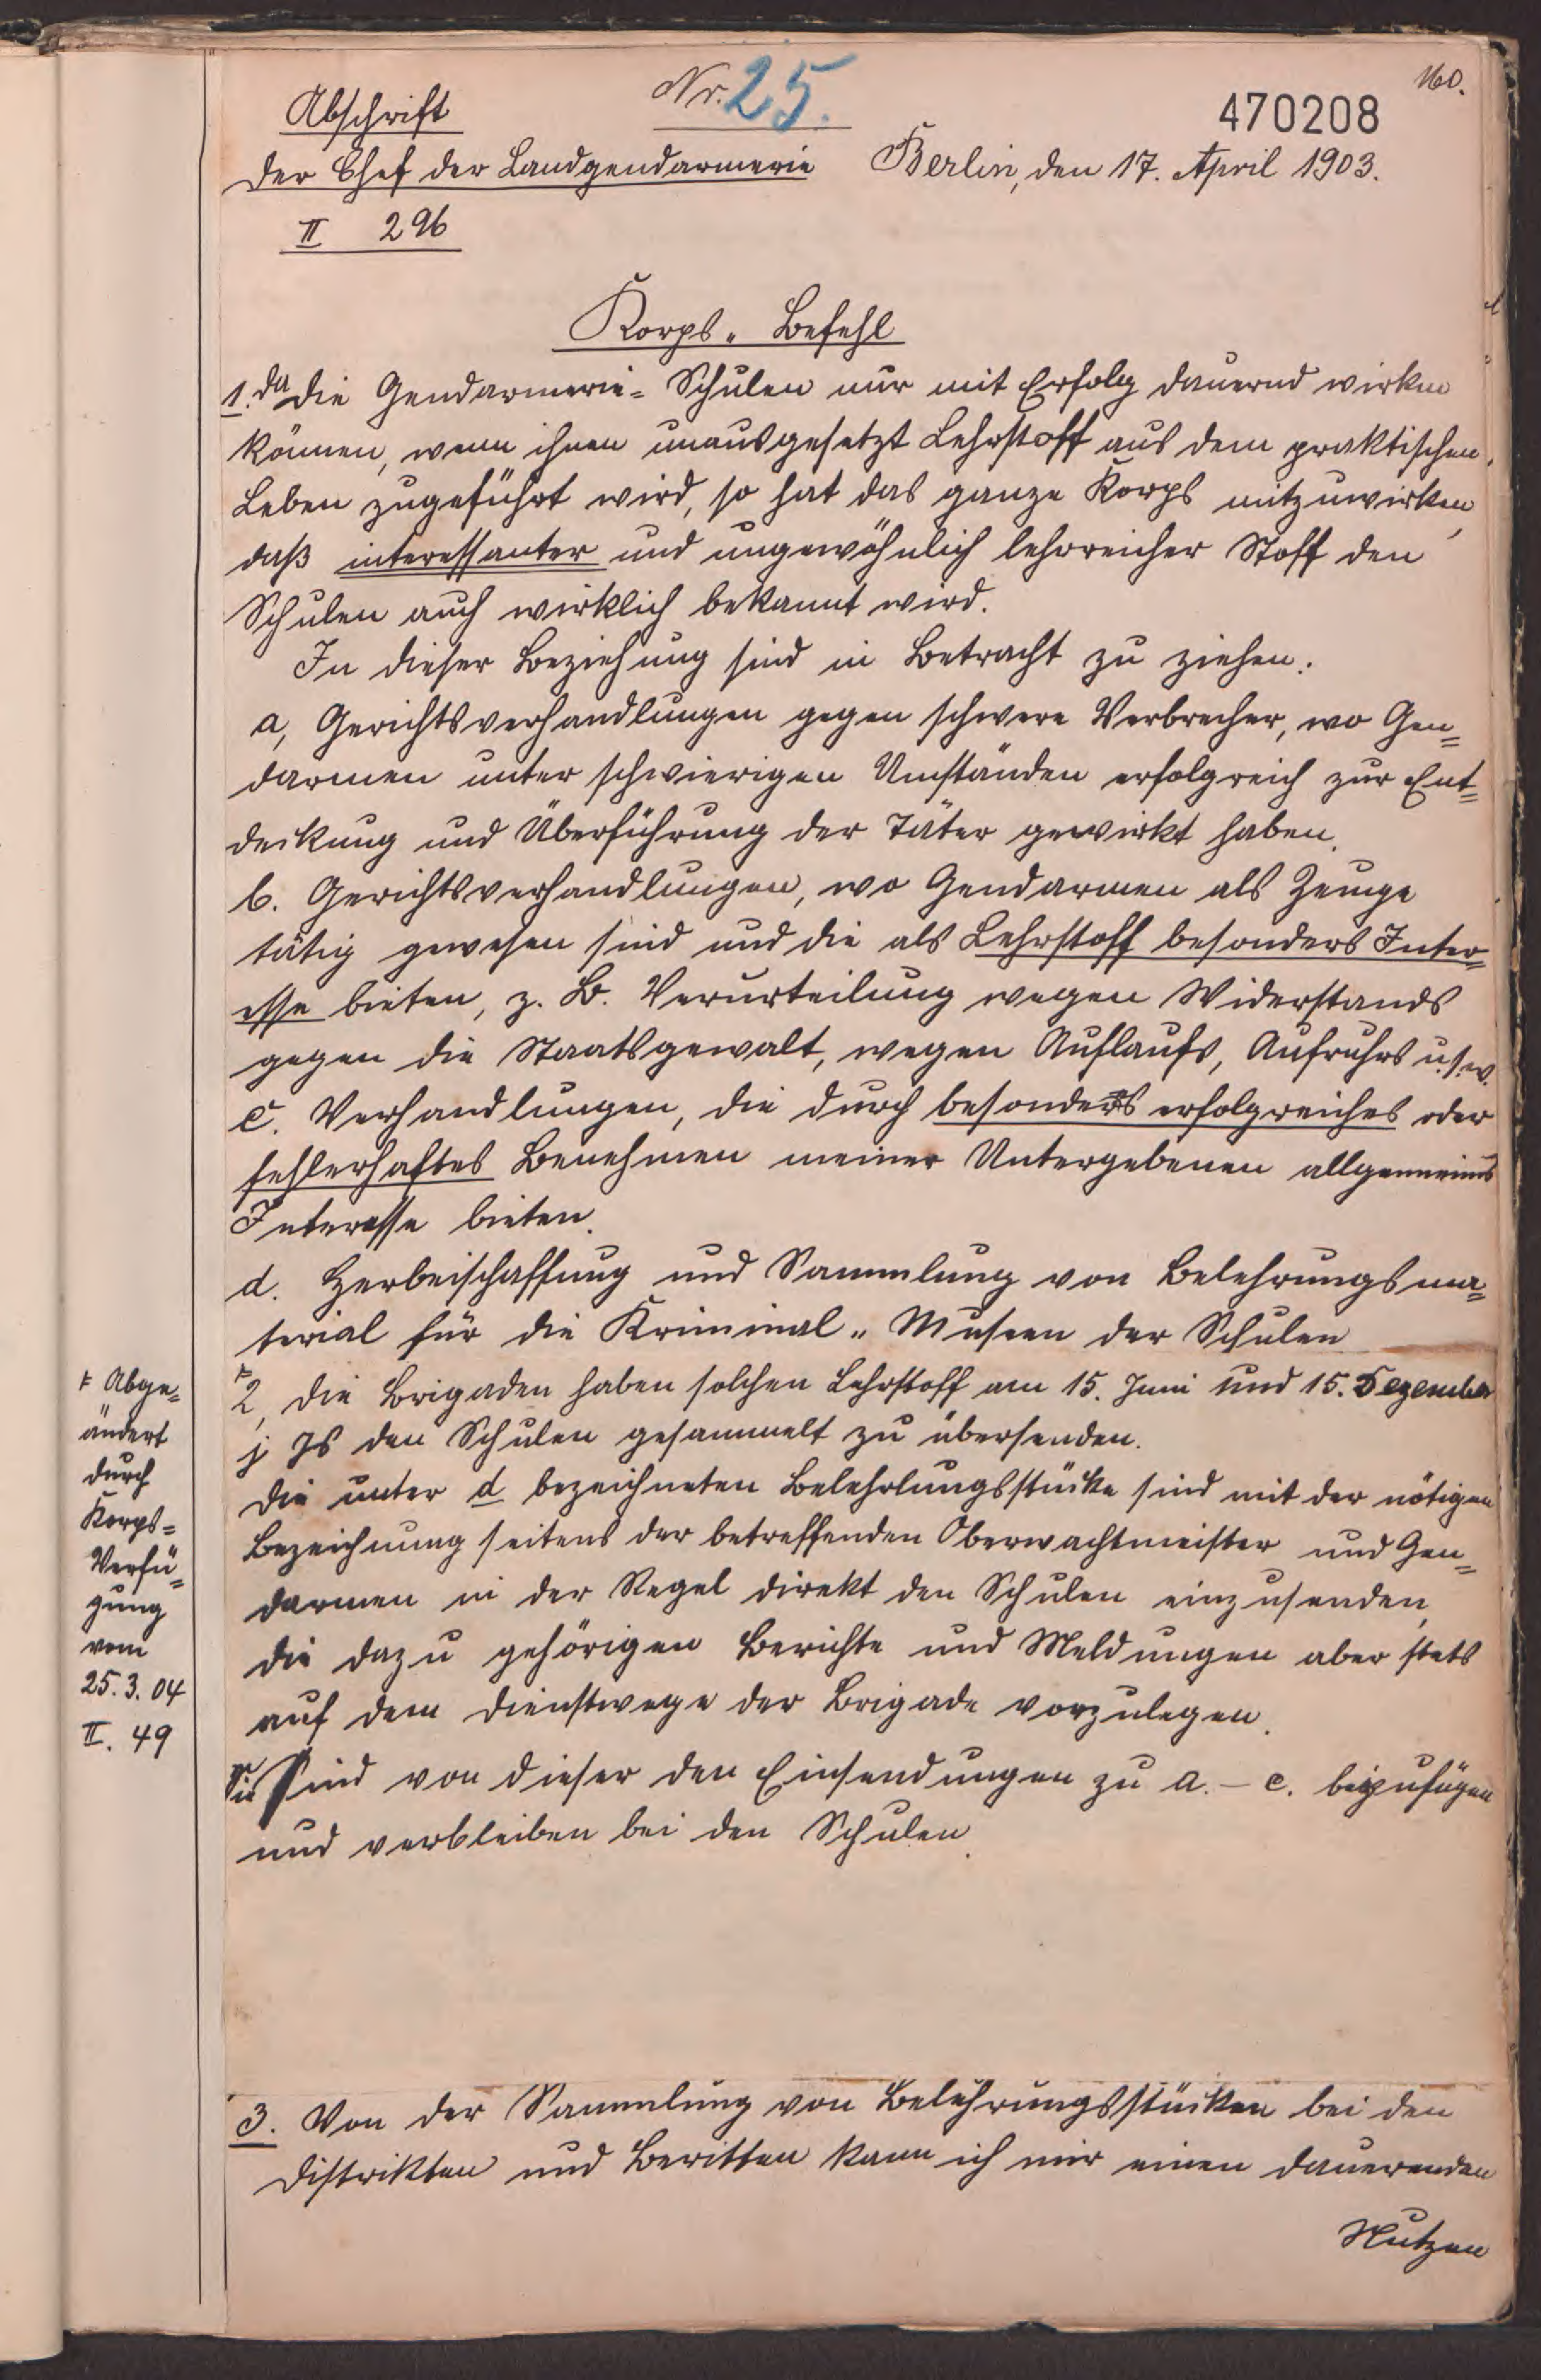 160.
Nr. 25.
470208
Abschrift
Der Chef der Landgendarmerie Berlin, den 17. April 1903.
II 296
Korps-Befehl
1. Da die Gendarmerie-Schulen nur mit Erfolg dauernd wirken
können, wenn ihnen unausgesetzt Lehrstoff aus dem praktischen
Leben zugeführt wird, so hat das ganze Korps mitzuwirken,
daß interessanter und ungewöhnlich lehrreicher Stoff den
Schulen auch wirklich bekannt wird.
In dieser Beziehung sind in Betracht zu ziehen:
a, Gerichtsverhandlungen gegen schwere Verbrecher, wo Gen=
darmen unter schwierigen Umständen erfolgreich zur Ent=
deckung und Überführung der Täter gewirkt haben.
b. Gerichtsverhandlungen, wo Gendarmen als Zeuge
tätig gewesen sind und die als Lehrstoff besonders Inter=
esse bieten, z. B. Verurteilung wegen Widerstands
gegen die Staatsgewalt, wegen Auflaufs, Aufruhrs u.s.w.
c. Verhandlungen, die durch besonders erfolgreiches oder
fehlerhaftes Benehmen meiner Untergebenen allgemeines
Interesse bieten.
d. Herbeischaffung und Sammlung von Belehrungsma=
terial für die Kriminal-Museen der Schulen
2, Die Brigaden haben solchen Lehrstoff am 15. Juni und 15. Dezember
j Js den Schulen gesammelt zu übersenden.
Die unter d bezeichneten Belehrungsstücke sind mit der nötigen
Bezeichnung seitens der betreffenden Oberwachtmeister und Gen=
darmen in der Regel direkt den Schulen einzusenden,
die dazu gehörigen Berichte und Meldungen aber stets
auf dem Dienstwege der Brigade vorzulegen.
Sie sind von dieser den Einsendungen zu a. - c. beizufügen
und verbleiben bei den Schulen.
Abge=
ändert
durch
Korps=
Verfü=
gung
vom
25.3.04
II. 49
3. Von der Sammlung von Belehrungsstücken bei den
Distrikten und Beritten kann ich mir einen dauerenden
Nutzen